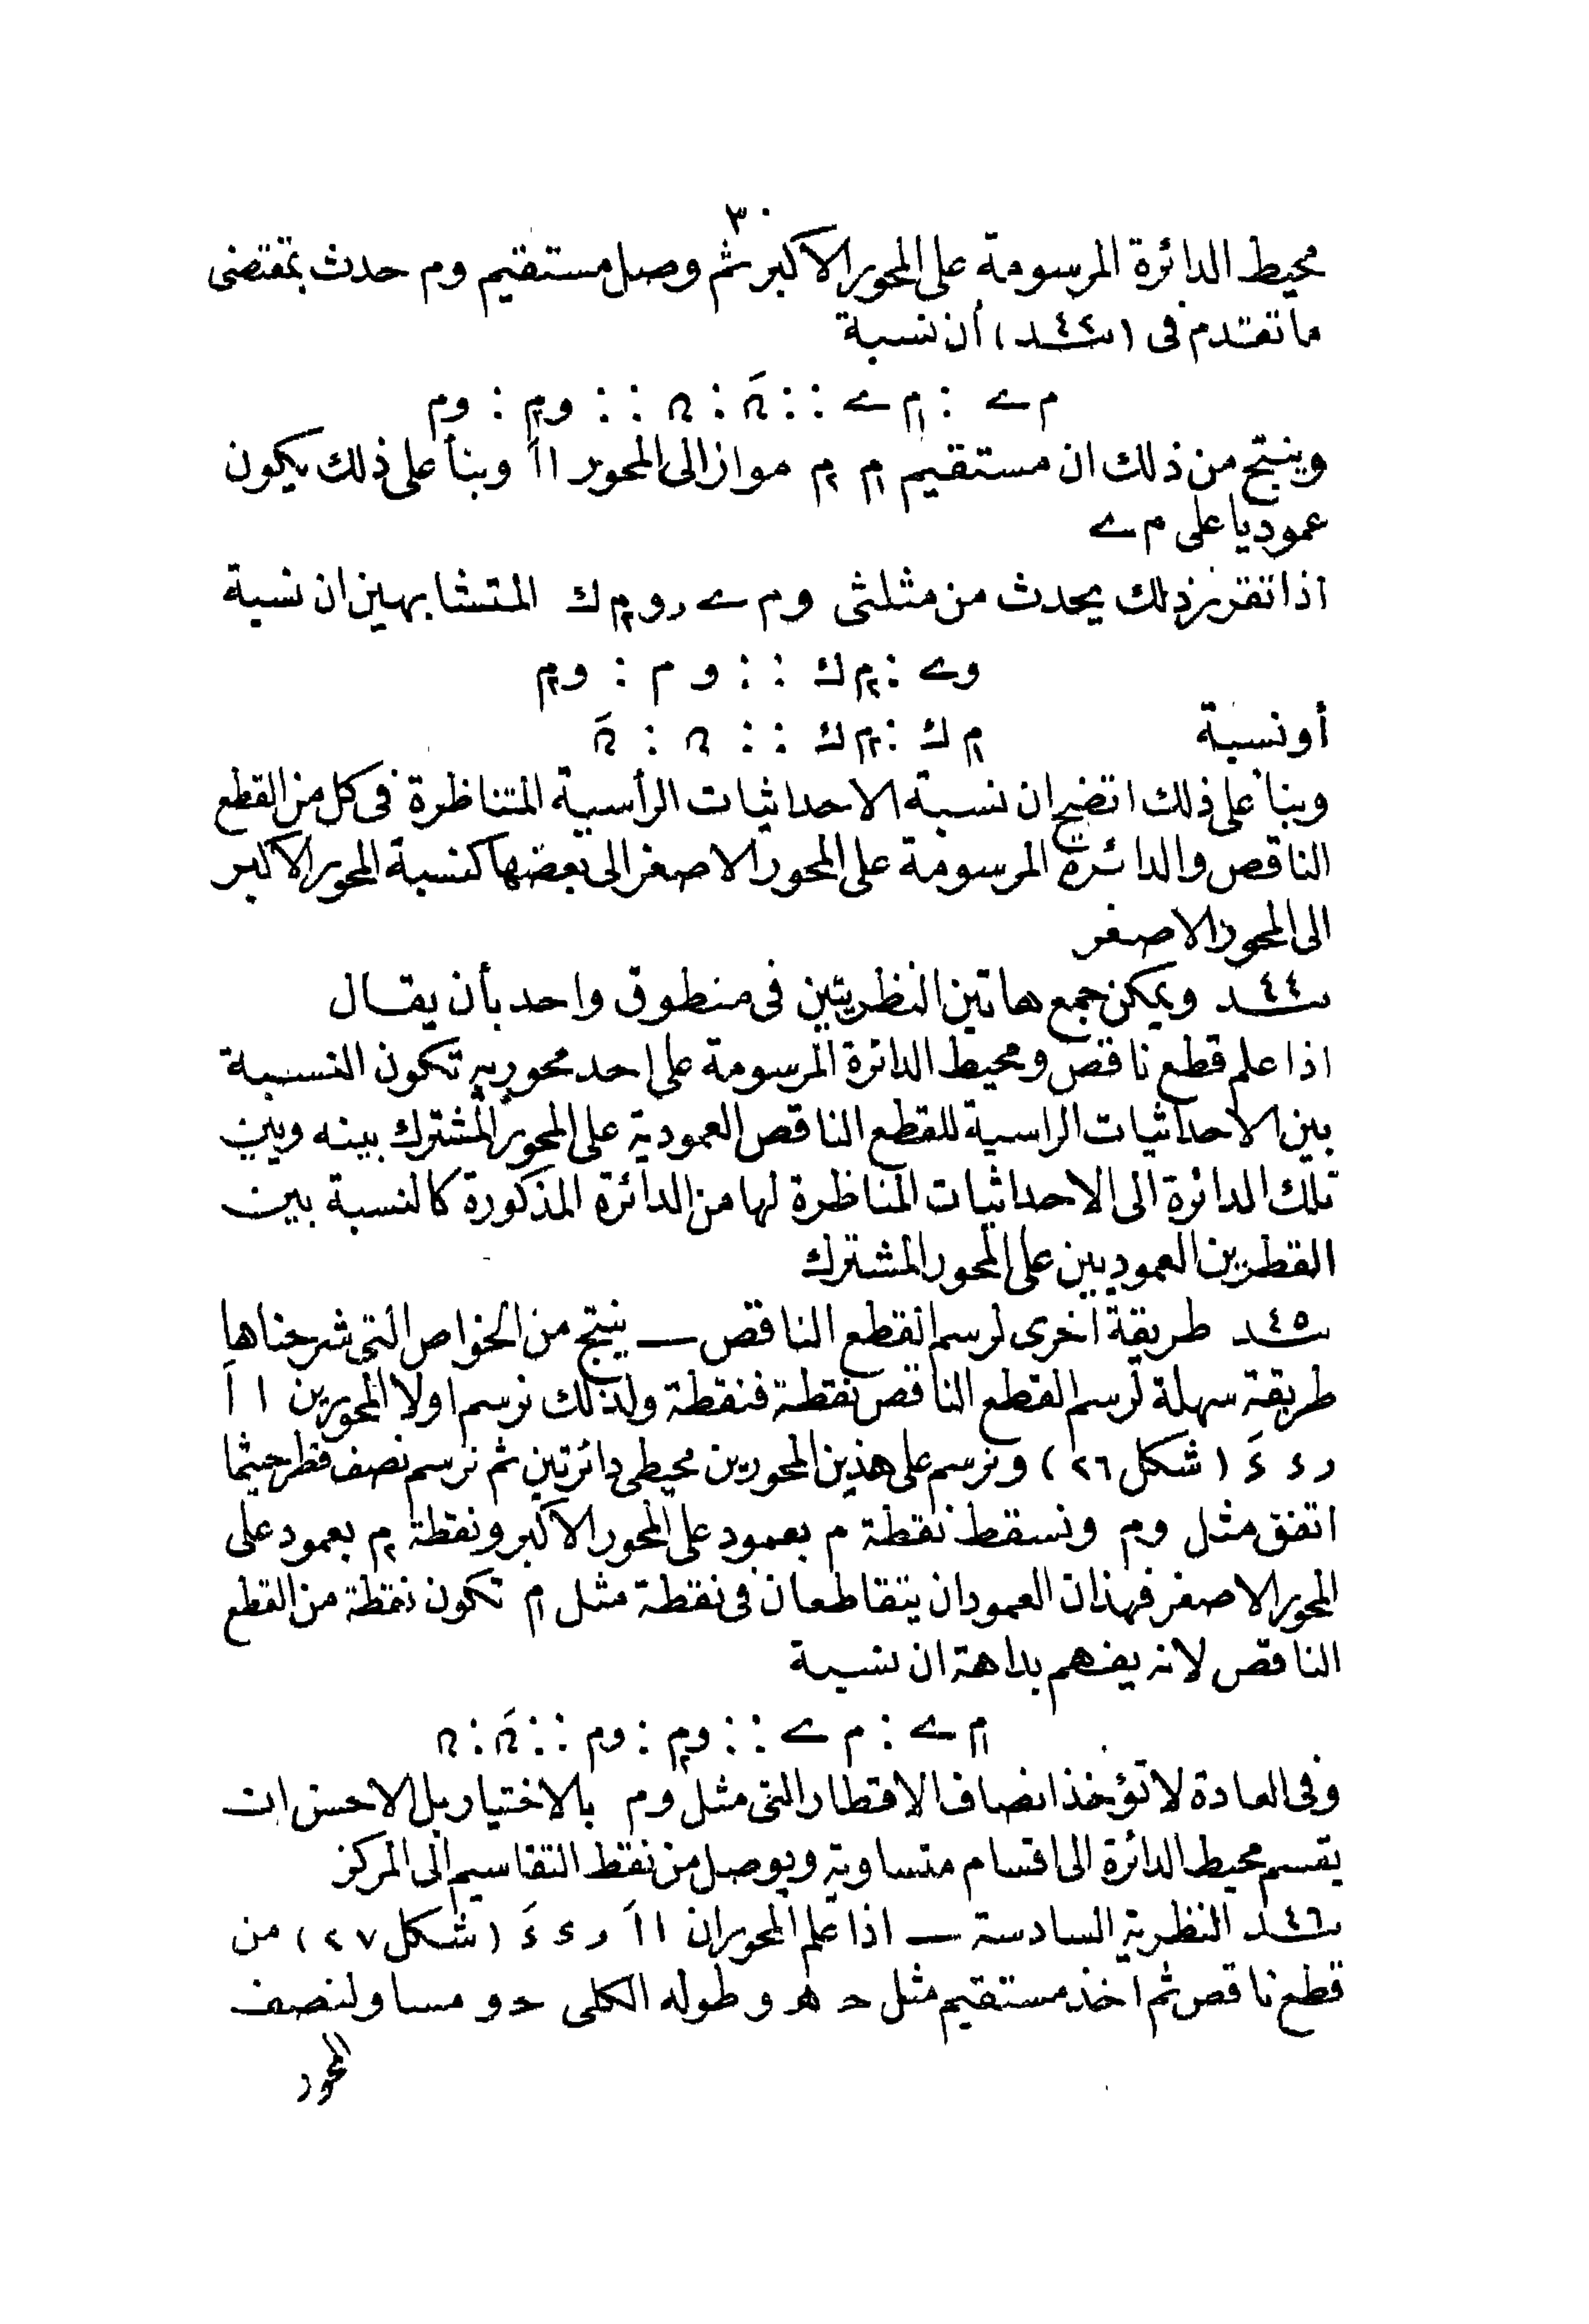 ٣٠
محيط الدائرة المرسومة على المحور الاكبر ثم وصل مستقيم وم حدث بمقتضى
ما تقدم فى (سـ٤٢ـد) أن نسبة
م ے : م١ ے :: ں َ : ں :: وم٢ : وم
وينتج من ذلك ان مستقيم م١ م٢ مواز الى المحور ا اَ وبنأ على ذلك يكون
عموديا على م ے
اذا تقرر ذلك يحدث من مثلثى وم ے ر وم٢ ك المتشابهين ان نسبة
وے : م٢ ك :: و م : وم٢
أو نسبة م١ ك : م٢ ك :: ں : ں َ
وبنأ على ذلك اتضح ان نسبة الاحداثيات الرأسية المتناظرة فى كل من القطع
الناقص والدائرة المرسومة على المحور الاصغر الى بعضها كنسبة المحور الاكبر
الى المحور الاصغر
سـ٤٤ـد ويمكن جمع هاتين النظريتين فى منطوق واحد بأن يقال
اذا علم قطع ناقص ومحيط الدائرة المرسومة على احد محوريه تكون النسبة
بين الاحداثيات الراسية للقطع الناقص العمودية على المحور المشترك بينه وبين
تلك الدائرة الى الاحداثيات المناظرة لها من الدائرة المذكورة كالنسبة بين
القطرين العموديين على المحور المشترك
سـ٤٥ـد طريقة اخرى لرسم القطع الناقص — ينتج من الخواص التى شرحناها
طريقة سهلة لرسم القطع الناقص نقطة فنقطة ولذلك نرسم اولا المحورين ا اَ
ر ء ءَ (شكل ٢٦) ونرسم على هذين المحورين محيطى دائرتين ثم نرسم نصف قطر حيثما
اتفق مثل وم ونسقط نقطة م بعمود على المحور الاكبر ونقطة م٢ بعمود على
المحور الاصغر فهذان العمودان يتقاطعان فى نقطة مثل م١ تكون نقطة من القطع
الناقص لانه يفهم بداهة ان نسبة
م١ ے : م ے :: وم٢ : وم :: ں َ : ں
وفى العادة لا تؤخذ انصاف الاقطار التى مثل وم بالاختيار بل الاحسن ان
يقسم محيط الدائرة الى اقسام متساوية ويوصل من نقط التقاسيم الى المركز
سـ٤٦ـد النظرية السادسة — اذا علم المحوران ا اَ ر ء ءَ (شكل ٢٧) من
قطع ناقص ثم اخذ مستقيم مثل حـ هـ و طوله الكلى حـ و مساو لنصف
المحور